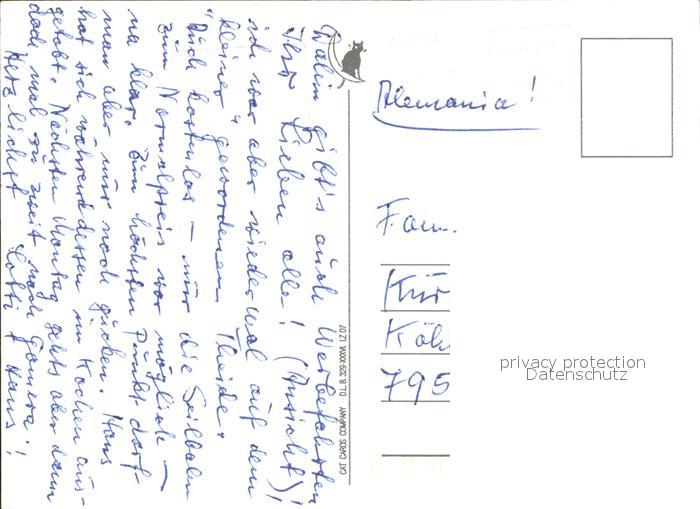 Dahin gibt's auch Werbefahrten
Ihr Lieben alle! (Ansicht)!
ich war aber wieder mal auf den
kleiner gewordenen Theide.
Auch kostenlos – nur die Seilbahn
zum Normalpreis war möglich –
na klar. Zum höchsten Punkt darf
man aber nur noch gucken. Hans
hat sich währenddessen im Kochen aus-
getobt. Nächsten Montag gehts aber dann
doch mal zu zweit nach Gomera!
Herzlichst Lotti + Hans!
CAT CARDS COMPANY D.L. B. LZ 07
Alemania!
Fam.
Kür
Köln
795
privacy protection
Datenschutz